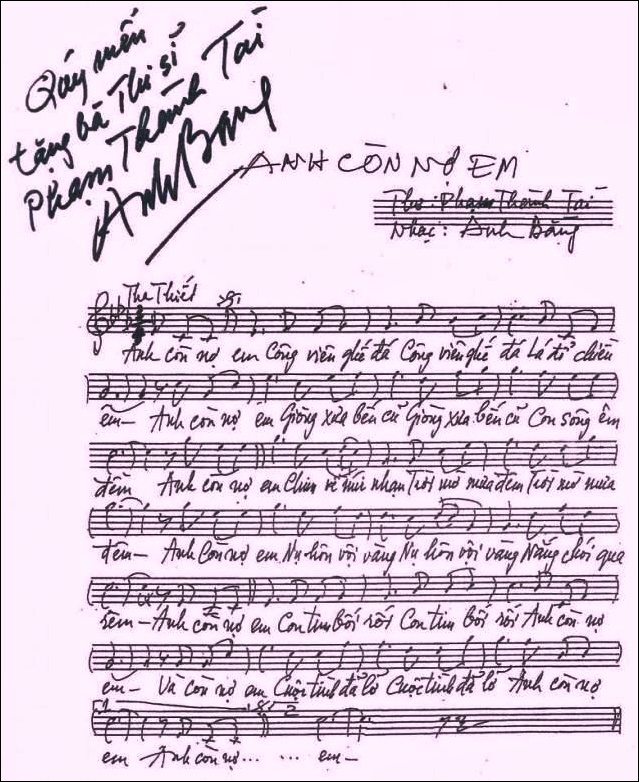 Quý mến
tặng bà Thi sĩ
Phạm Thành Tài
Anh Bằng
ANH CÒN NỢ EM
Thơ: Phạm Thành Tài
Nhạc: Anh Bằng
Tha Thiết
Anh còn nợ em Công viên ghế đá Công viên ghế đá Lá đổ chiều
êm— Anh còn nợ em Giòng xưa bến cũ Giòng xưa bến cũ Con sông êm
đềm Anh còn nợ em Chim về núi nhạn Trời mờ mưa đêm Trời mờ mưa
đêm— Anh Còn nợ em Nụ hôn vội vàng Nụ hôn vội vàng Nắng chói qua
rèm—Anh còn nợ em Con tim bối rối Con tim bối rối Anh còn nợ
em— Và còn nợ em Cuộc tình đã lỡ Cuộc tình đã lỡ Anh còn nợ
1 2
em Anh còn nợ... ... em—